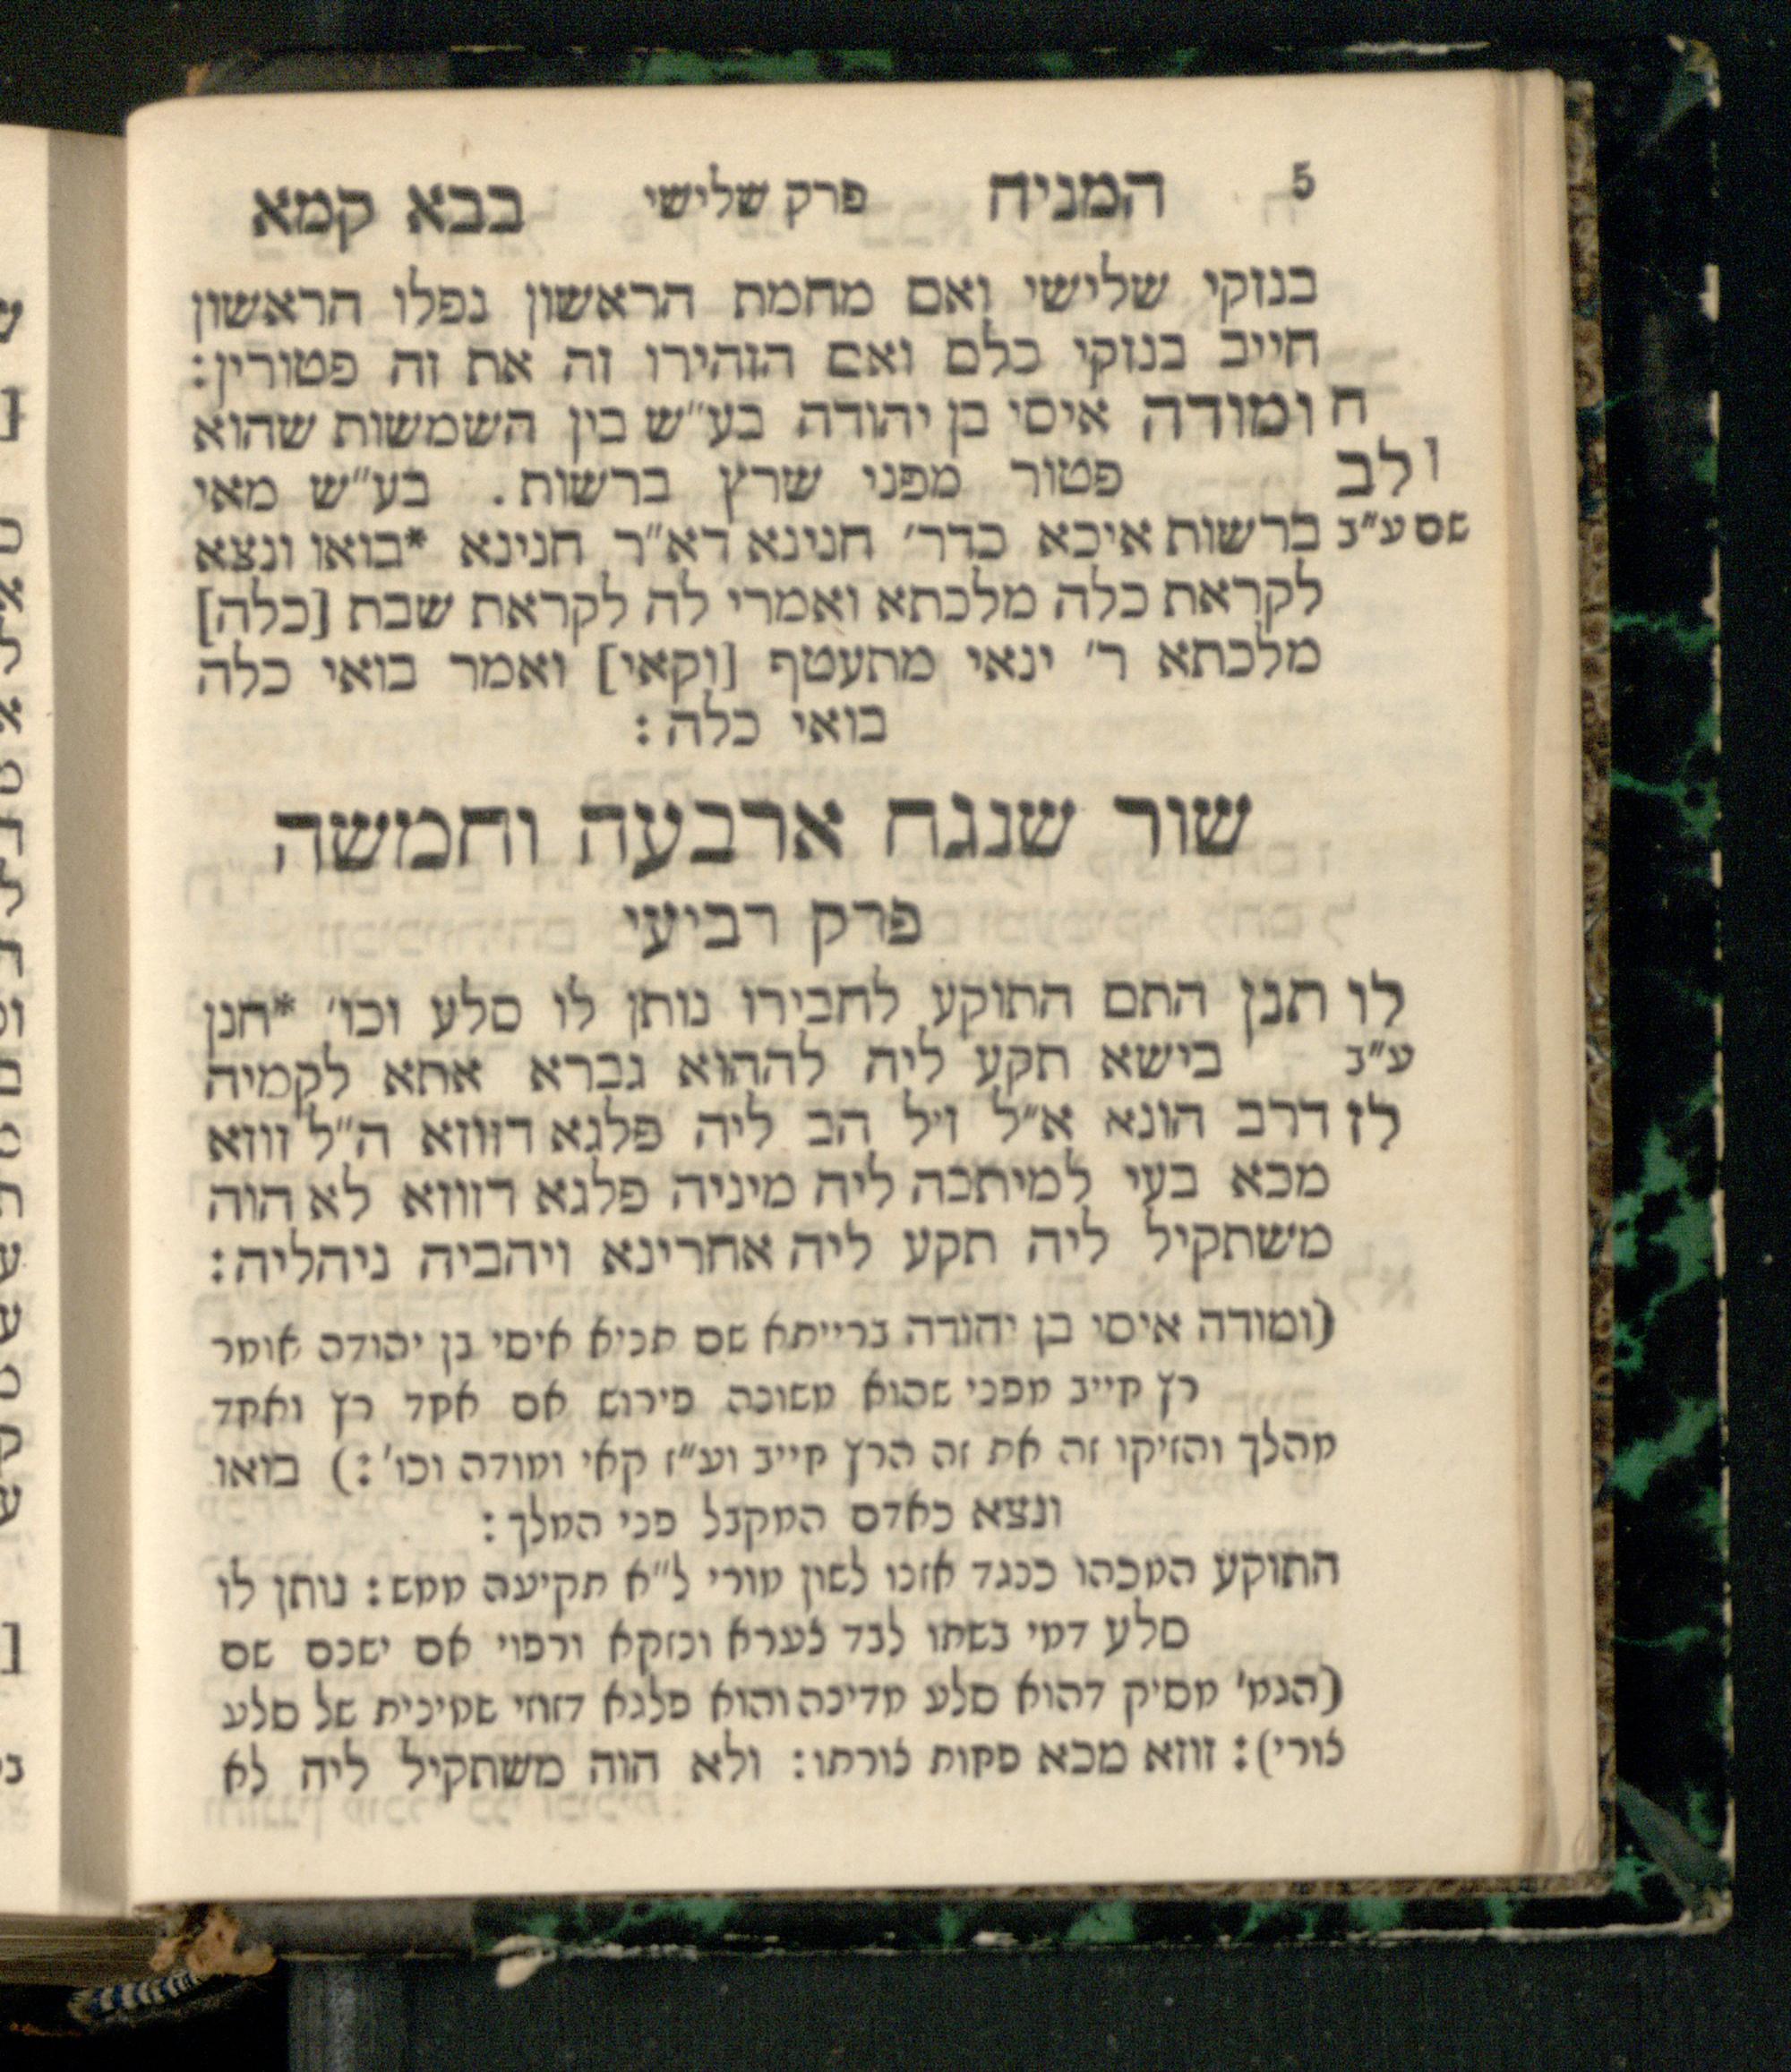 5 המניח פרק שלישי בבא קמא
בנזקי שלישי ואם מחמת הראשון נפלו הראשון
חייב בנזקי כלם ואם הזהירו זה את זה פטורין:
ח ומודה איסי בן יהודה בע״ש בין השמשות שהוא
ולב פטור מפני שרץ ברשות. בע״ש מאי
שם ע״ב ברשות איכא כדר׳ חנינא דא״ר חנינא *בואו ונצא
לקראת כלה מלכתא ואמרי לה לקראת שבת [כלה]
מלכתא ר׳ ינאי מתעטף [וקאי] ואמר בואי כלה
בואי כלה:
שור שנגח ארבעה וחמשה
פרק רביעי
לו תנן התם התוקע לחבירו נותן לו סלע וכו׳ *חנן
ע״ב בישא תקע ליה לההוא גברא אתא לקמיה
לז דרב הונא א״ל זיל הב ליה פלגא דזוזא ה״ל זוזא
מכא בעי למיתבה ליה מיניה פלגא דזוזא לא הוה
משתקיל ליה תקע ליה אחרינא ויהביה ניהליה:
(ומודה איסי בן יהודה ברייתא שם תניא איסי בן יהודה אומר
רץ חייב מפני שהוא משונה פירוש אם אחד רץ ואחד
מהלך והזיקו זה את זה הרץ חייב וע״ז קאי ומודה וכו׳:) בואו
ונצא כאדם המקבל פני המלך:
התוקע המכהו כנגד אזנו לשון מורי ל״א תקיעה ממש: נותן לו
סלע דמי בשתו לבד צערא ונזקא ורפוי אם ישנם שם
(הגמ׳ מסיק דהוא סלע מדינה והוא פלגא דזוזי שמינית של סלע
צורי): זוזא מכא פחות צורתו: ולא הוה משתקיל ליה לא